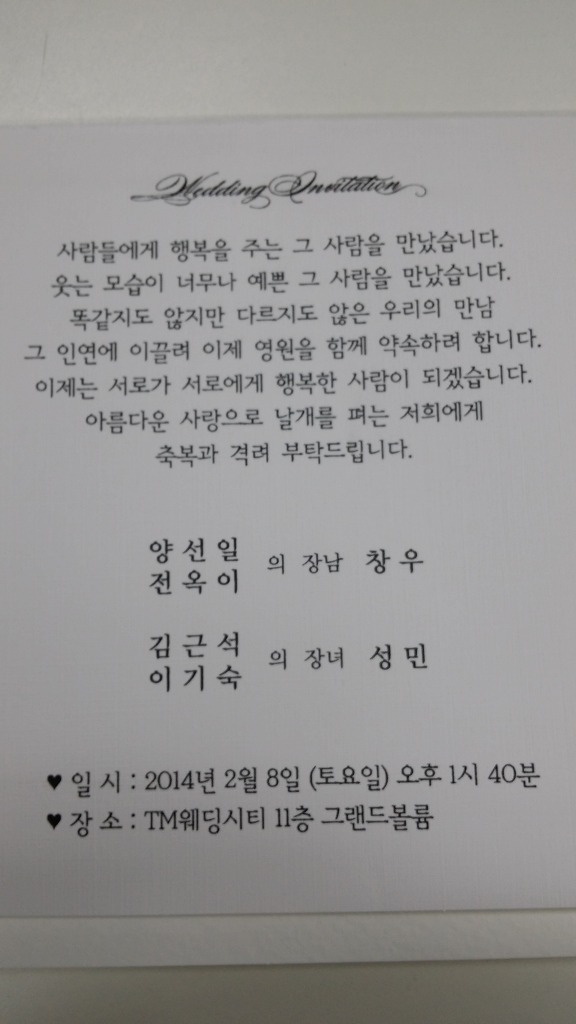 Wedding Invitation
사람들에게 행복을 주는 그 사람을 만났습니다.
웃는 모습이 너무나 예쁜 그 사람을 만났습니다.
똑같지도 않지만 다르지도 않은 우리의 만남
그 인연에 이끌려 이제 영원을 함께 약속하려 합니다.
이제는 서로가 서로에게 행복한 사람이 되겠습니다.
아름다운 사랑으로 날개를 펴는 저희에게
축복과 격려 부탁드립니다.
양 선 일
전 옥 이
의 장남 창 우
김 근 석
이 기 숙
의 장녀 성 민
♥ 일 시 : 2014년 2월 8일 (토요일) 오후 1시 40분
♥ 장 소 : TM웨딩시티 11층 그랜드볼륨